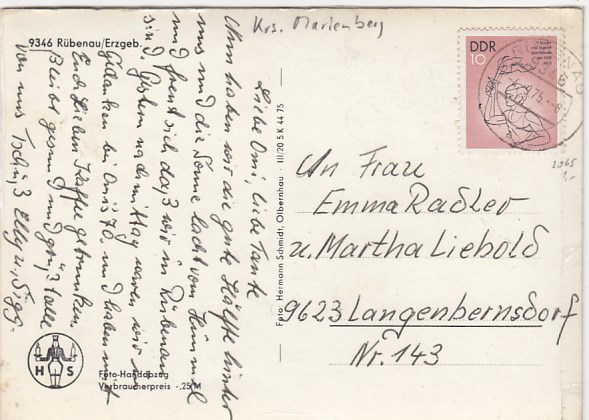 9346 Rübenau/Erzgeb.
Krs. Marienberg
Liebe Omi, liebe Tante
Nun haben wir die gute Hälfte hinter
uns und die Sonne lacht vom Himmel
und freut sich, daß wir in Rübenau
sind. Gestern nachmittag waren wir in
Gedanken bei Omis 70. und haben mit
Euch Lieben Kaffee getrunken.
Bleibt gesund und grüßt alle
von uns Tschüß Elly u. Sigg.
Foto: Hermann Schmidt, Olbernhau · III/20 5 K 44 75
H S
Foto-Handabzug
Verbraucherpreis -,25 M
DDR
10
An Frau
Emma Radler
u. Martha Liebold
9623 Langenbernsdorf
Nr. 143